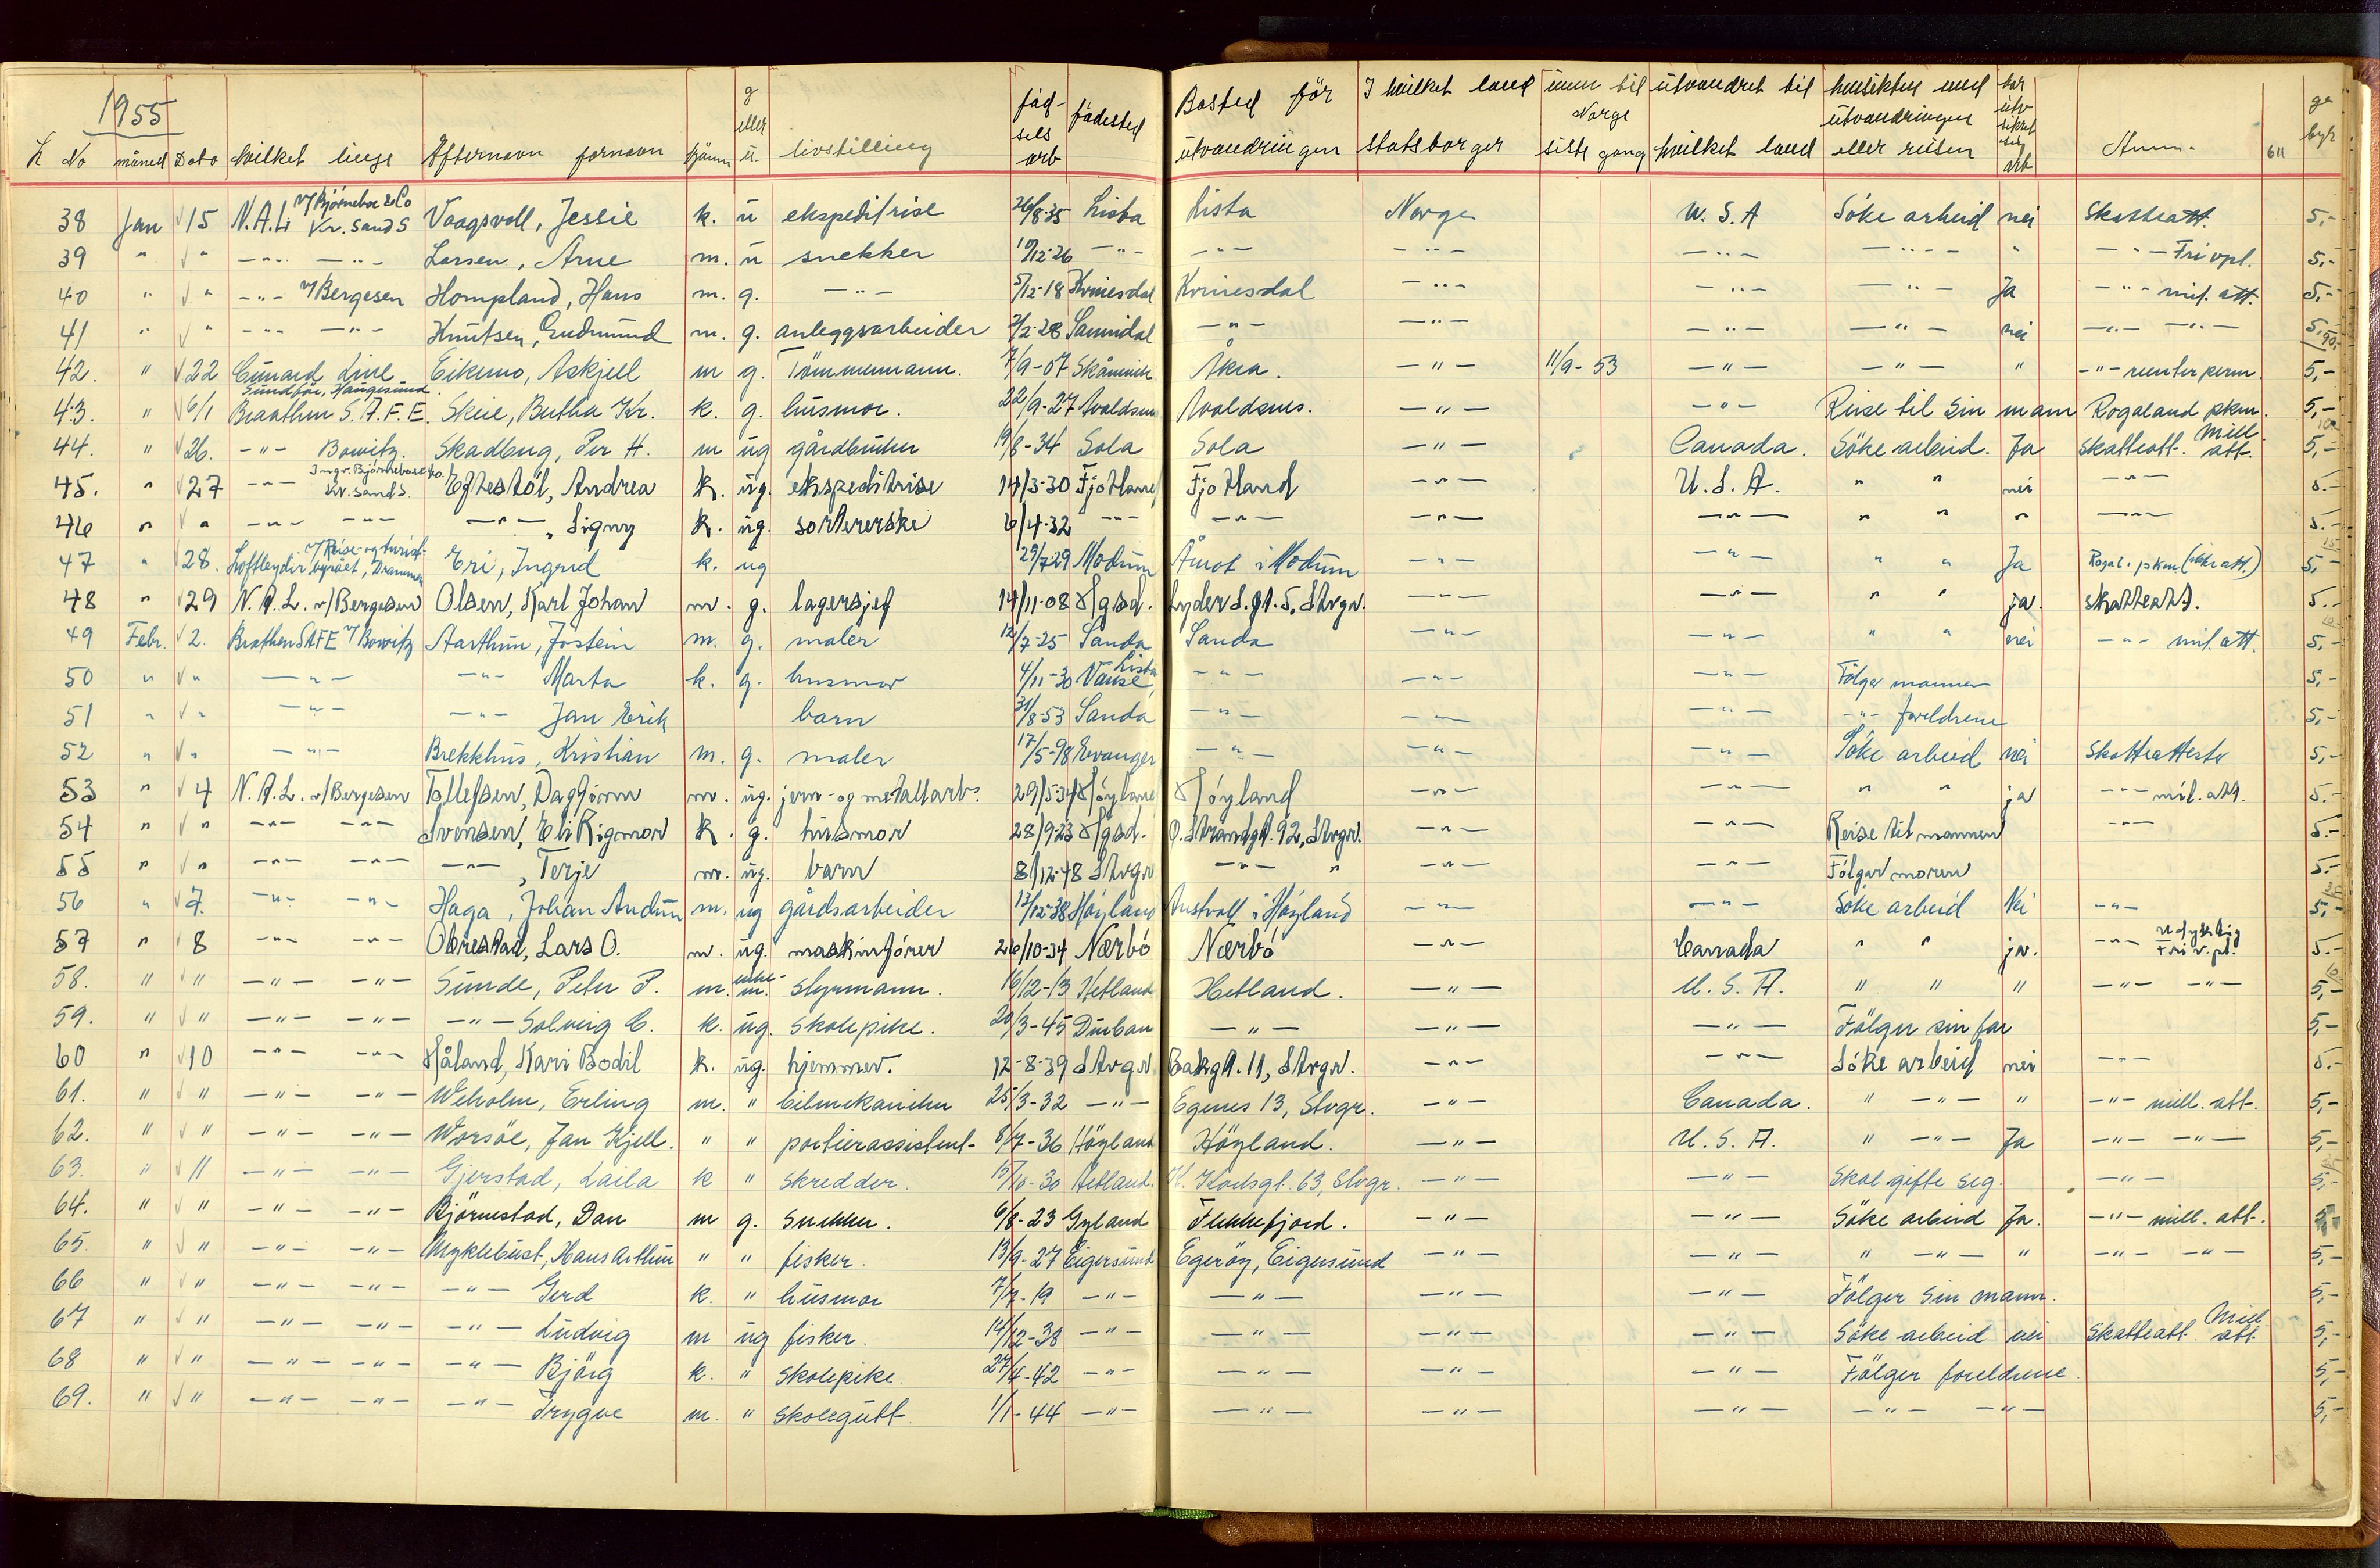 1955
L No måned Dato hvilket linje Efternavn fornavn kjönn g eller u livstilling föd-sels arb födested Bosted för utvandringen I hvilket land statsborger inn til Norge siste gang utvandret til hvilket land hensikten med utvandringen eller reisen har utv sikret seg arb Anm. 611 ge byr
38 Jan 15 N.A.L. v/Bjørneboe & Co Kr. Sand S Vaagsvoll, Jessie k. u ekspeditrise 26/8-35 Lista Lista Norge U.S.A Söke arbeid nei Skatteatt. 5,-
39 " " -"- -"- Larsen, Arne m. u snekker 10/12-26 -"- -"- -"- -"- -"- " -"- Fri vpl. 5,-
40 " " -"- v/Bergesen Hompland, Hans m. g. -"- 5/12-18 Kvinesdal Kvinesdal -"- -"- -"- Ja -"- mil. att. 5,-
41 " " -"- -"- Knutsen, Gudmund m. g. anleggsarbeider 7/2-28 Sannidal -"- -"- -"- -"- nei -"- -"- 5,- 90,-
42. " 22 Cunard Line Sundför, Haugesund. Eikemo, Askjell m g. Tömmermann. 7/9-07 Skånevik Åkra. -"- 11/9-53 -"- -"- " -"- reenter perm. 5,-
43. " 6/1 Braathen S.A.F.E. Skeie, Bertha Kr. k. g. husmor. 22/9-27 Avaldsnes Avaldsnes. -"- -"- Reise til sin mann Rogaland pkm. 5,-
44. " 26. -"- Bowitz. Skadberg, Per H. m ug gårdbruker 19/8-34 Sola Sola -"- Canada. Söke arbeid. Ja Skatteatt. Mill. att. 5,-
45. " 27 -"- Ingv. Bjørneboe & Co. Kr. Sand S. Eftestöl, Andrea k. ug. ekspeditrise 14/3-30 Fjotland Fjotland -"- U.S.A. " " nei -"- 5.-
46 " " -"- -"- -"-, Signy k. ug. sortererske 6/4-32 -"- -"- -"- -"- " " " -"- 5.-
47 " 28. Loftleydir v/Reise- og turist-byrået, Drammen Eri, Ingerid k. ug 29/7-29 Modum Åmot i Modum -"- -"- " " Ja Rogal. pkm (skatt att.) 5,-
48 " 29 N.A.L. v/Bergesen Olsen, Karl Johan m. g. lagersjef 14/11-08 Hgsd. Lyder S.gt. 5, Stvgr. -"- -"- " " ja. skatteatt. 5.-
49 Febr. 2. Brathen SAFE v/Bowitz Aarthun, Jostein m. g. maler 12/7-25 Sanda Sanda -"- -"- " " nei -"- mil. att. 5,-
50 " " -"- -"- Marta k. g. husmor 4/11-30 Vanse, Lista -"- -"- -"- Fölger mannen 5,-
51 " " -"- -"- Jan Erik barn 31/8-53 Sanda -"- -"- -"- -"- foreldrene 5,-
52 " " -"- Brekkhus, Kristian m. g. maler 17/5-98 Evanger -"- -"- -"- Söke arbeid nei Skatteattest 5,-
53 " 4 N.A.L. v/Bergesen Tollefsen, Dagfinn m. ug. jern- og metallarb. 29/5-34 Höyland Höyland -"- -"- " " ja -"- mil. att. 5.-
54 " " -"- -"- Svensen, Eli Rigmor k. g. husmor 28/9-23 Hgsd. Ö. Strandgt. 92, Stvgr. -"- -"- Reise til mannen -"- 5.-
55 " " -"- -"- -"-, Terje m. ug. barn 8/12-48 Stvgr -"- " -"- -"- Fölger moren 5.-
56 " 7. -"- -"- Haga, Johan Audun m. ug gårdsarbeider 13/12-38 Höyland Austvoll i Höyland -"- -"- Söke arbeid Nei -"- 5,-
57 " 8 -"- -"- Obrestad, Lars O. m. ug. maskinförer 26/10-34 Nærbö Nærbö -"- Canada " " ja. -"- Udyktig Fri v.pl. 5.-
58. " " -"- -"- Sunde, Peter P. m. enke-m. styrmann. 16/12-13 Hetland Hetland. -"- U.S.A. " " " -"- -"- 5,-
59. " " -"- -"- -"- Solveig C. k. ug. skolepike. 20/3-45 Durban -"- -"- -"- Fölger sin far 5,-
60 " 10 -"- -"- Håland, Kari Bodil k. ug. hjemmev. 12-8-39 Stvgr. Bakgt. 11, Stvgr. -"- -"- Söke arbeid nei -"- 5.-
61. " " -"- -"- Weholm, Erling m. " bilmekaniker 25/3-32 -"- Egenes 13, Stvgr. -"- Canada. " -"- " -"- mill. att. 5,-
62. " " -"- -"- Worsöe, Jan Kjell. " " portierassistent- 8/7-36 Höyland Höyland. -"- U.S.A. " -"- Ja -"- -"- 5,-
63. " 11 -"- -"- Gjerstad, Laila k " skredder. 15/10-30 Hetland. Stvgr. -"- -"- Skal gifte seg. -"- 5,-
64. " " -"- -"- Björnestad, Dan m g. snekker. 6/8-23 Gyland Flekkefjord. -"- -"- Söke arbeid Ja. -"- mill. att. 5,-
65. " " -"- -"- Myklebust, Hans Arthur " " fisker. 13/9-27 Eigersund Egeröy, Eigersund -"- -"- " -"- " -"- -"- 5,-
66 " " -"- -"- -"- Gerd k. " husmor 7/7-19 -"- -"- -"- -"- Fölger sin mann. 5,-
67 " " -"- -"- -"- Ludvig m ug fisker. 14/12-38 -"- -"- -"- -"- Söke arbeid nei Skatteatt. Mill. att. 5,-
68 " " -"- -"- -"- Björg k. " skolepike. 27/4-42 -"- -"- -"- -"- Fölger foreldrene. 5,-
69. " " -"- -"- -"- Trygve m. " skolegutt. 1/1-44 -"- -"- -"- -"- -"- -"- 5,-